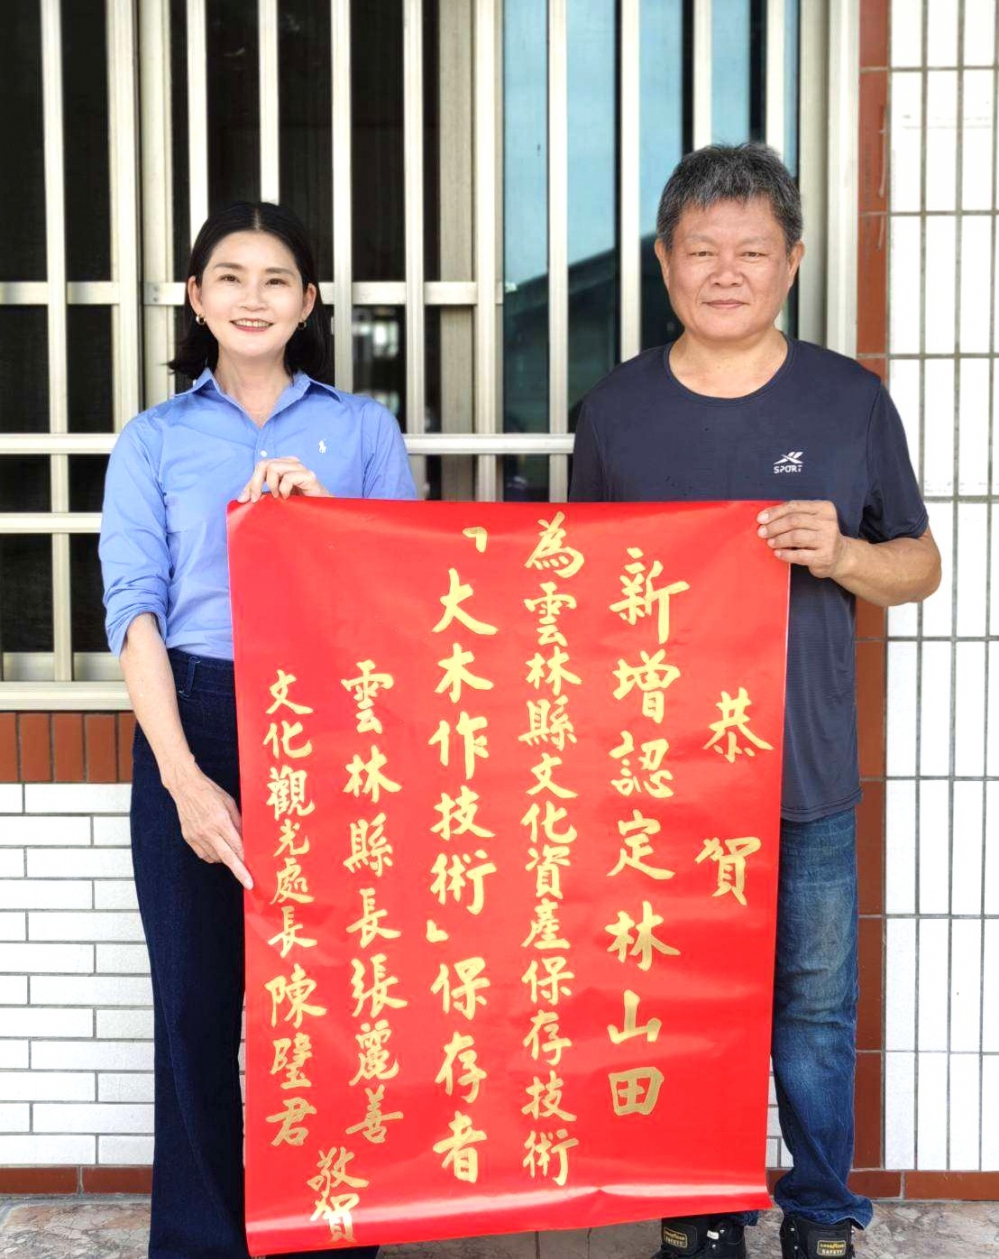 恭賀
新增認定林山田
為雲林縣文化資產保存技術
「大木作技術」保存者
雲林縣長張麗善
文化觀光處長陳璧君
敬賀
SPORT